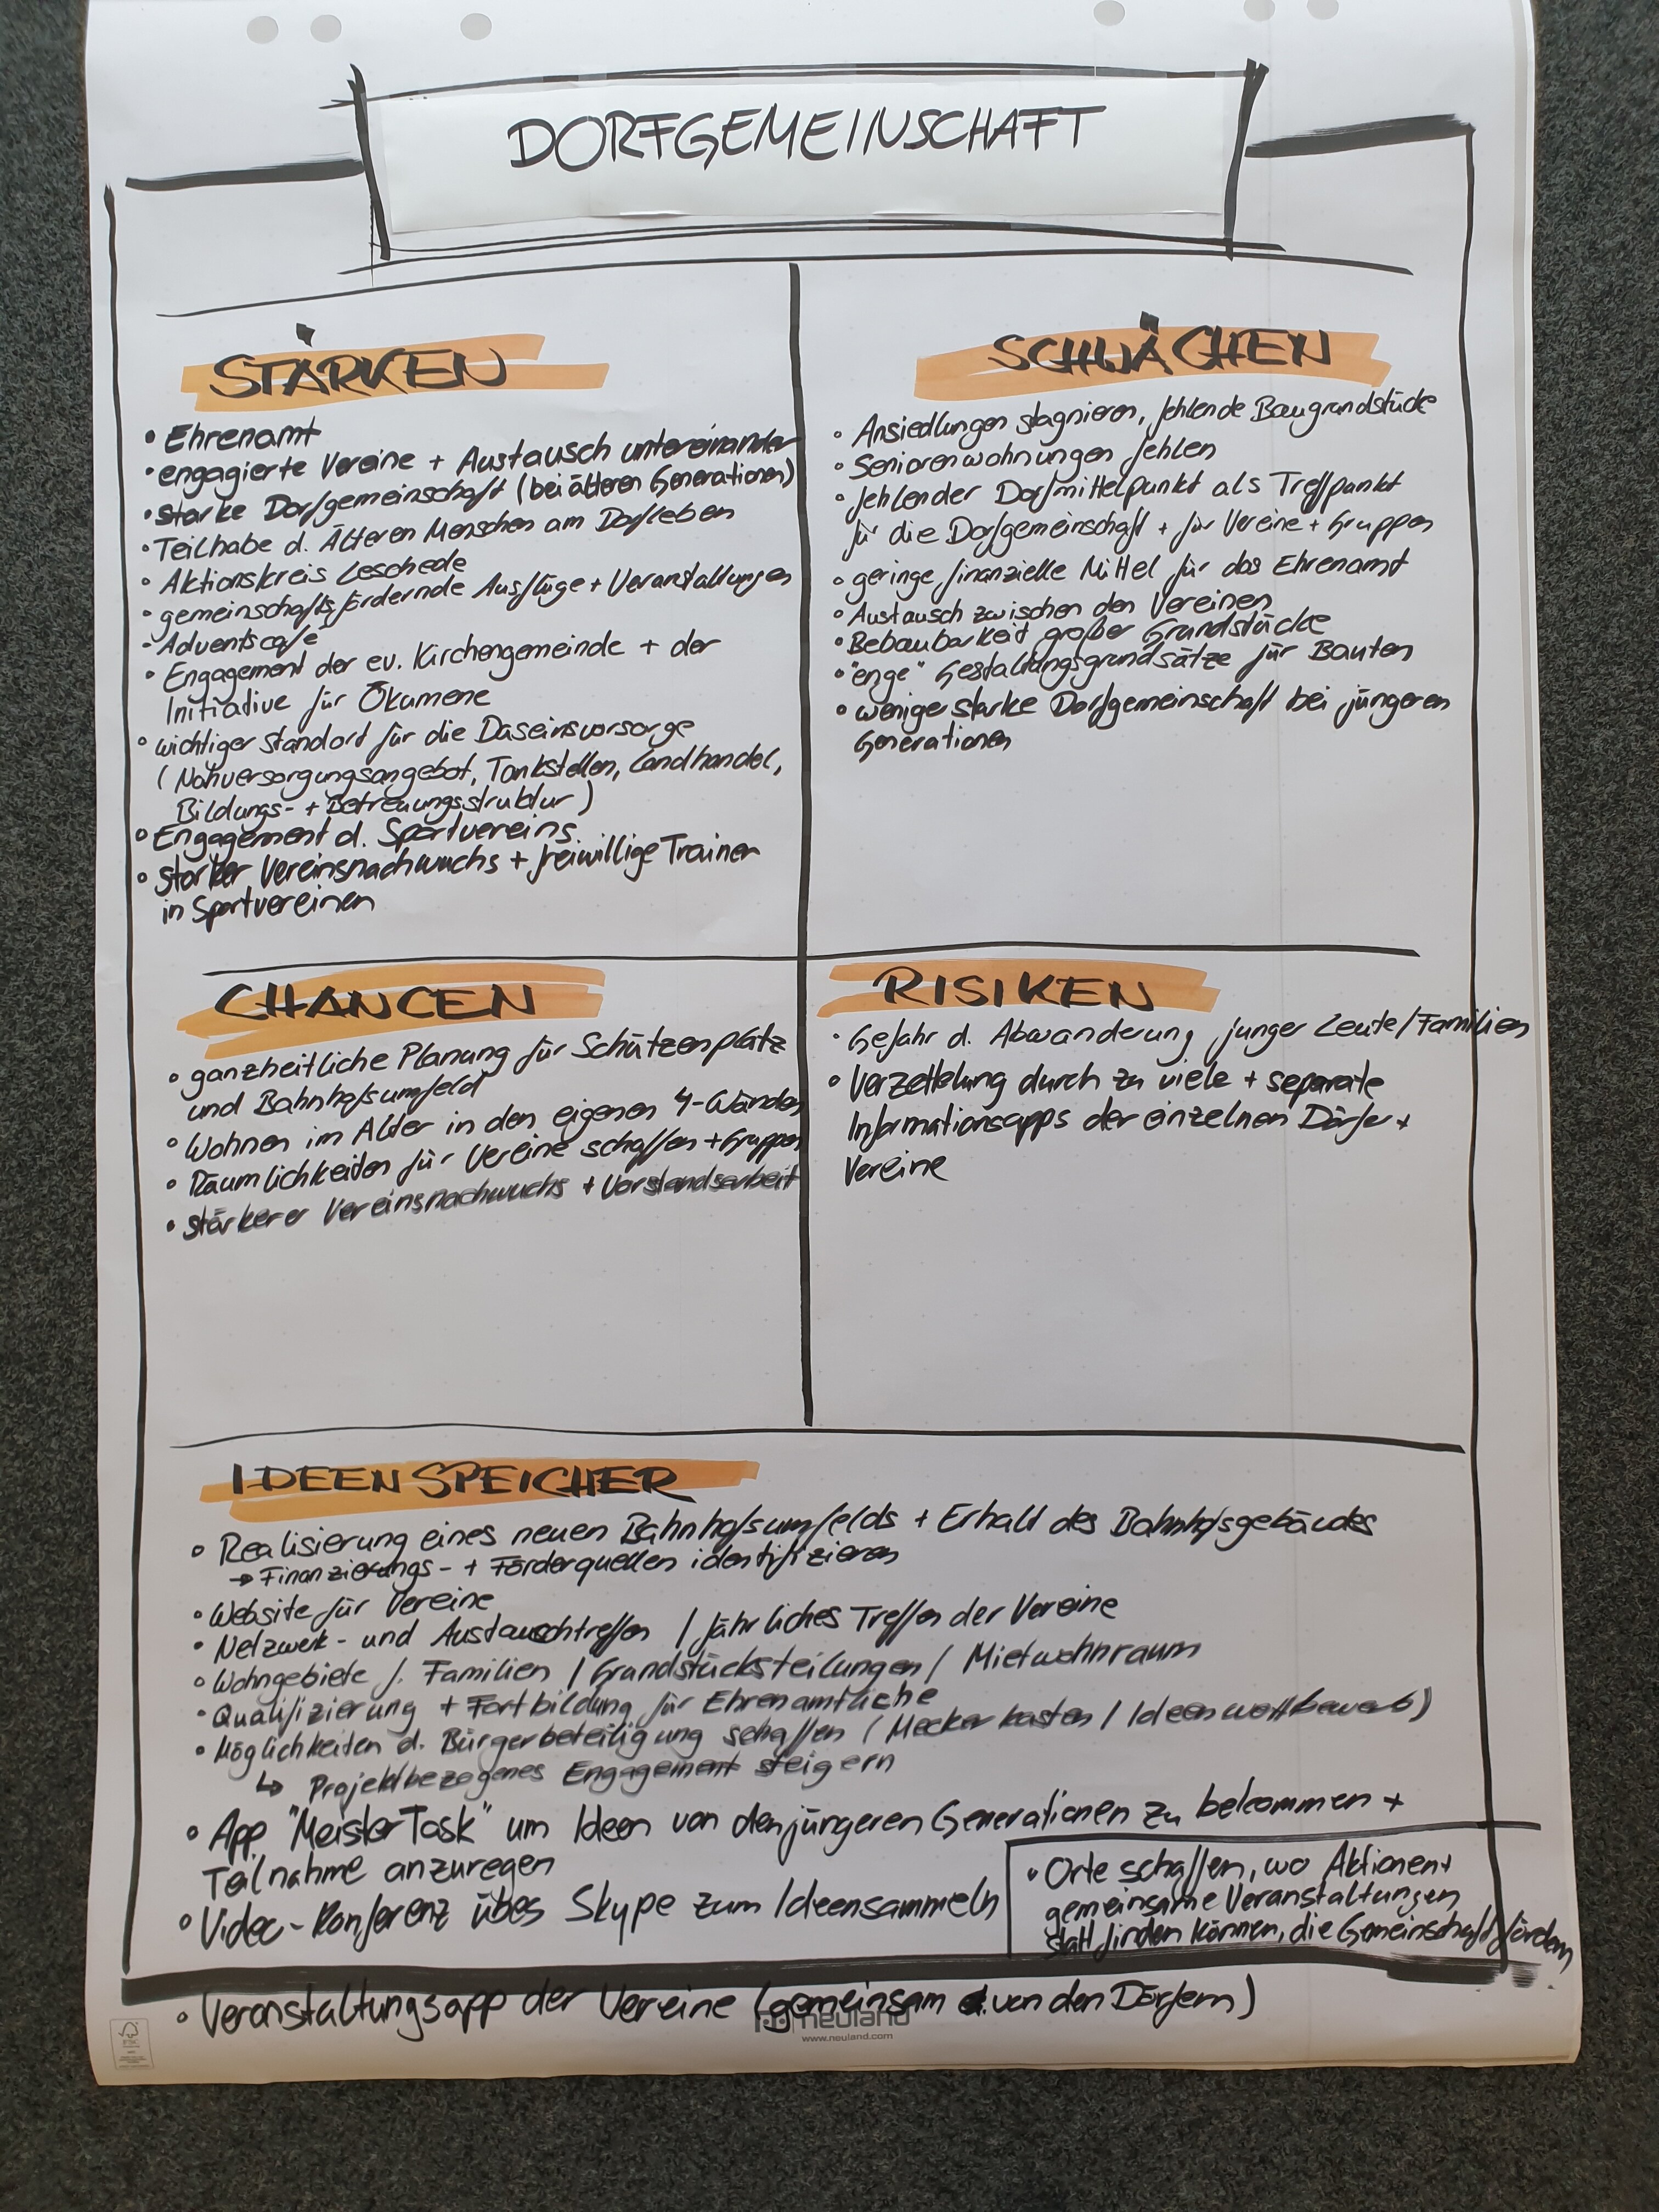 DORFGEMEINSCHAFT
STÄRKEN
• Ehrenamt
• engagierte Vereine + Austausch untereinander
• starke Dorfgemeinschaft (bei älteren Generationen)
• Teilhabe d. Älteren Menschen am Dorfleben
• Aktionskreis Leschede
• gemeinschaftsfördernde Ausflüge + Veranstaltungen
- Adventscafé
• Engagement der ev. Kirchengemeinde + der
Initiative für Ökumene
• wichtiger Standort für die Daseinsvorsorge
(Nahversorgungsangebot, Tankstellen, Landhandel,
Bildungs- + Betreuungsstruktur)
• Engagement d. Sportvereins
• starker Vereinsnachwuchs + freiwillige Trainer
in Sportvereinen
SCHWÄCHEN
• Ansiedlungen stagnieren, fehlende Baugrundstücke
• Seniorenwohnungen fehlen
• fehlender Dorfmittelpunkt als Treffpunkt
für die Dorfgemeinschaft + für Vereine + Gruppen
• geringe finanzielle Mittel für das Ehrenamt
• Austausch zwischen den Vereinen
• Bebaubarkeit großer Grundstücke
• "enge" Gestaltungsgrundsätze für Bauten
• wenige starke Dorfgemeinschaft bei jüngeren
Generationen
CHANCEN
• ganzheitliche Planung für Schützenplatz
und Bahnhofsumfeld
• Wohnen im Alter in den eigenen 4-Wänden
• Räumlichkeiten für Vereine schaffen + Gruppen
• stärkerer Vereinsnachwuchs + Vorstandsarbeit
RISIKEN
• Gefahr d. Abwanderung junger Leute/Familien
• Verzettelung durch zu viele + separate
Informationsapps der einzelnen Dörfer +
Vereine
IDEENSPEICHER
• Realisierung eines neuen Bahnhofsumfelds + Erhalt des Bahnhofsgebäudes
→ Finanzierungs- + Förderquellen identifizieren
• Website für Vereine
• Netzwerk- und Austauschtreffen / jährliches Treffen der Vereine
• Wohngebiete f. Familien / Grundstücksteilungen / Mietwohnraum
• Qualifizierung + Fortbildung für Ehrenamtliche
• Möglichkeiten d. Bürgerbeteiligung schaffen (Meckerkasten / Ideenwettbewerb)
↳ Projektbezogenes Engagement steigern
• App "MeisterTask" um Ideen von den jüngeren Generationen zu bekommen +
Teilnahme anzuregen
• Video-Konferenz übes Skype zum Ideensammeln
• Orte schaffen, wo Aktionen +
gemeinsame Veranstaltungen
stattfinden können, die Gemeinschaft fördern
• Veranstaltungsapp der Vereine (gemeinsam von den Dörfern)
neuland
www.neuland.com